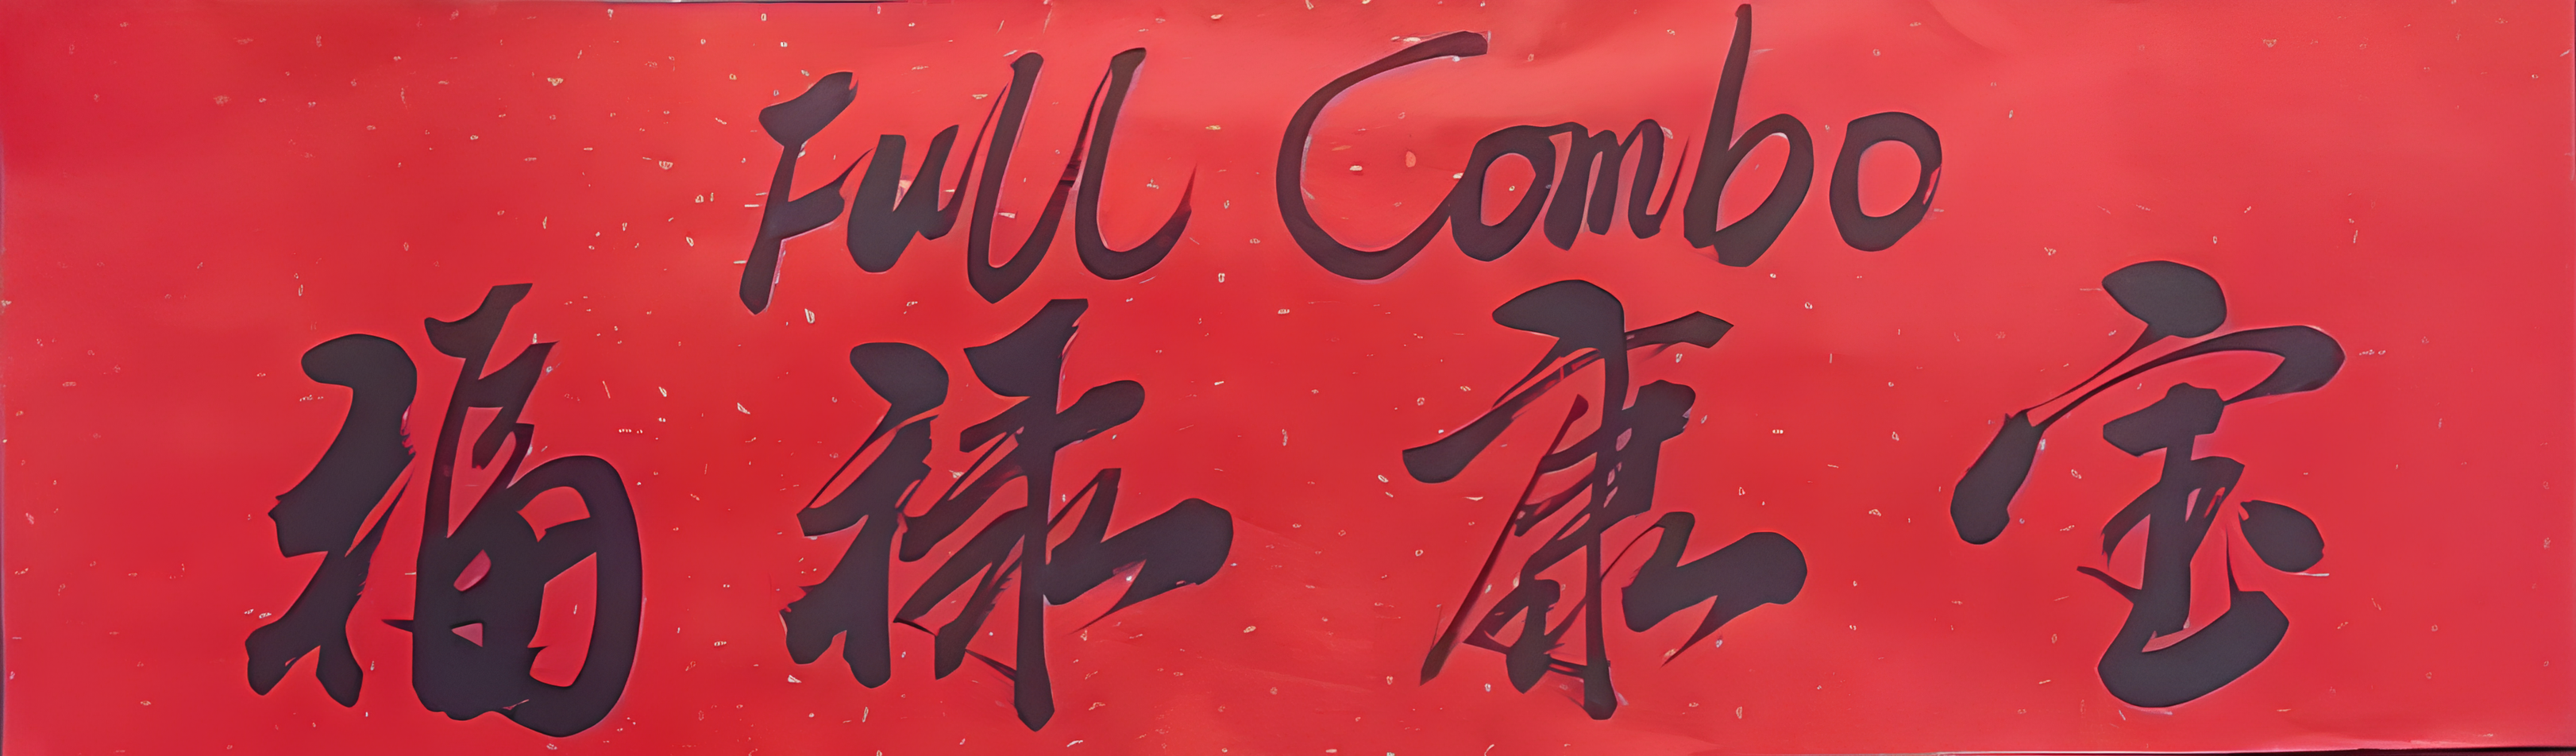 Full Combo
福禄康宝